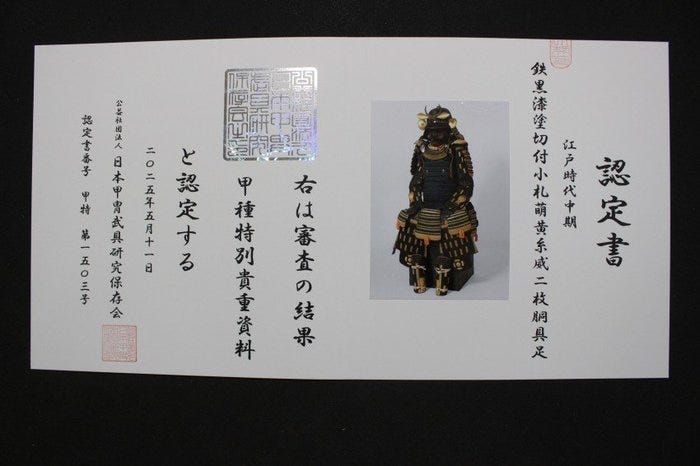 認定書
鉄黒漆塗切付小札萌黄糸威二枚胴具足
江戸時代中期
右は審査の結果
甲種特別貴重資料
と認定する
二〇二五年五月十一日
公益社団法人 日本甲冑武具研究保存会
認定書番号 甲特 第一五〇三号